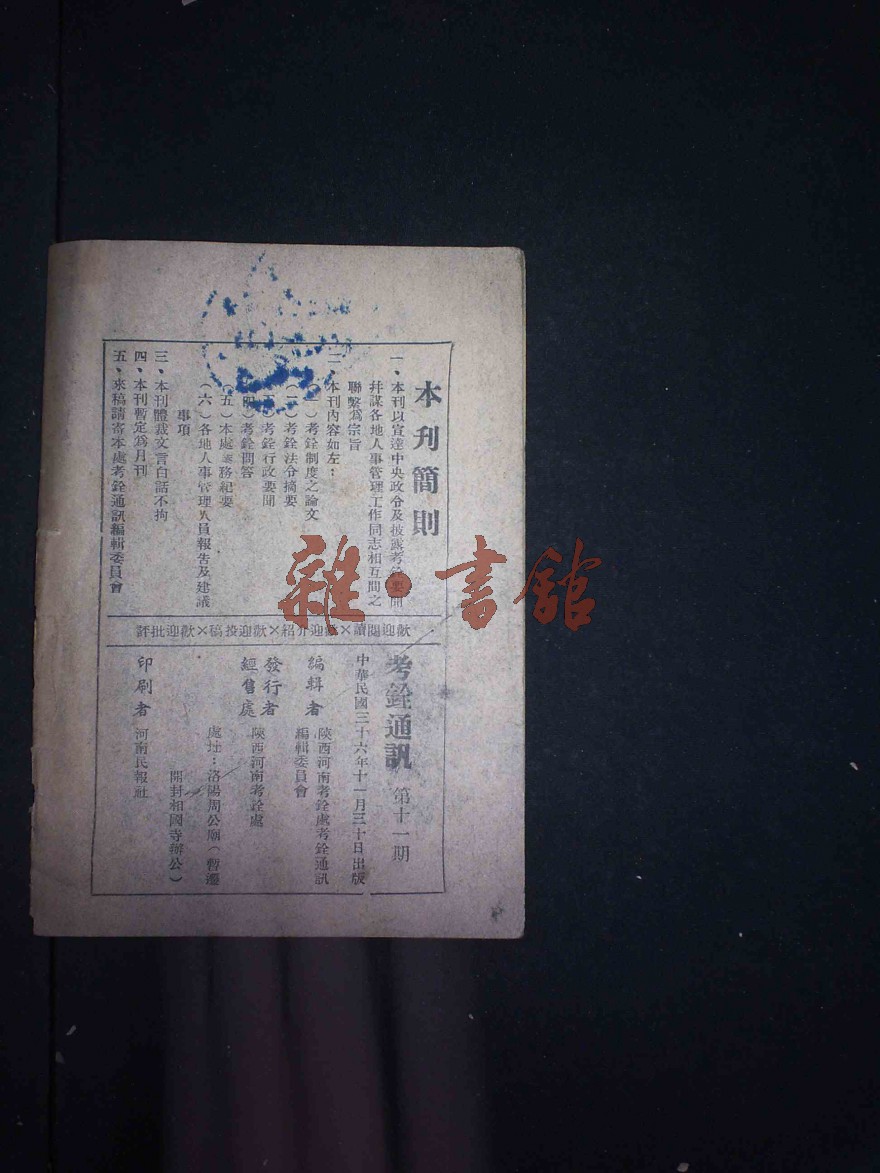 本刊簡則
一、本刊以宣達中央政令及披露考銓要聞
幷謀各地人事管理工作同志相互間之
聯繫爲宗旨
二、本刊內容如左：
（一）考銓制度之論文
（二）考銓法令摘要
（三）考銓行政要聞
（四）考銓問答
（五）本處業務紀要
（六）各地人事管理人員報告及建議
事項
三、本刊體裁文言白話不拘
四、本刊暫定爲月刊
五、來稿請寄本處考銓通訊編輯委員會
歡迎閱讀×歡迎介紹×歡迎投稿×歡迎批評
考銓通訊 第十一期
中華民國三十六年十一月三十日出版
編輯者 陝西河南考銓處考銓通訊
編輯委員會
發行者
經售處
陝西河南考銓處
處址：洛陽周公廟（暫遷
開封相國寺辦公）
印刷者 河南民報社
雜·書館